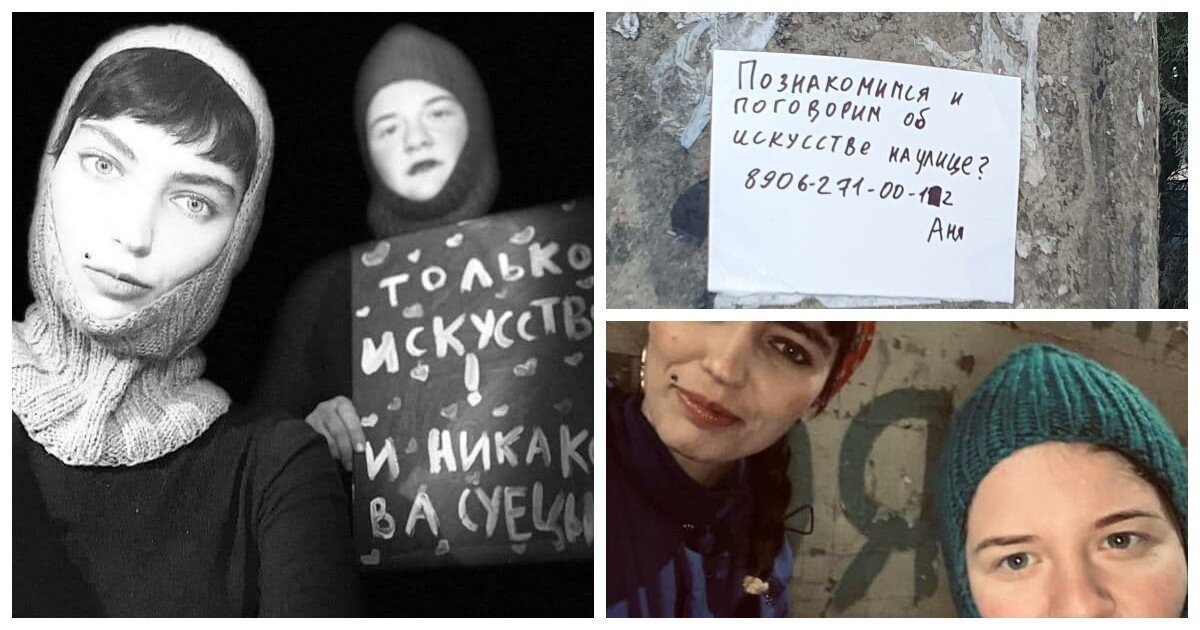 ТОЛЬКО
ИСКУССТВ
!
И НИКАК
ВА СУЕЦЫ
Познакомимся и
поговорим об
искусстве на улице?
8906-271-00-1 2
Аня